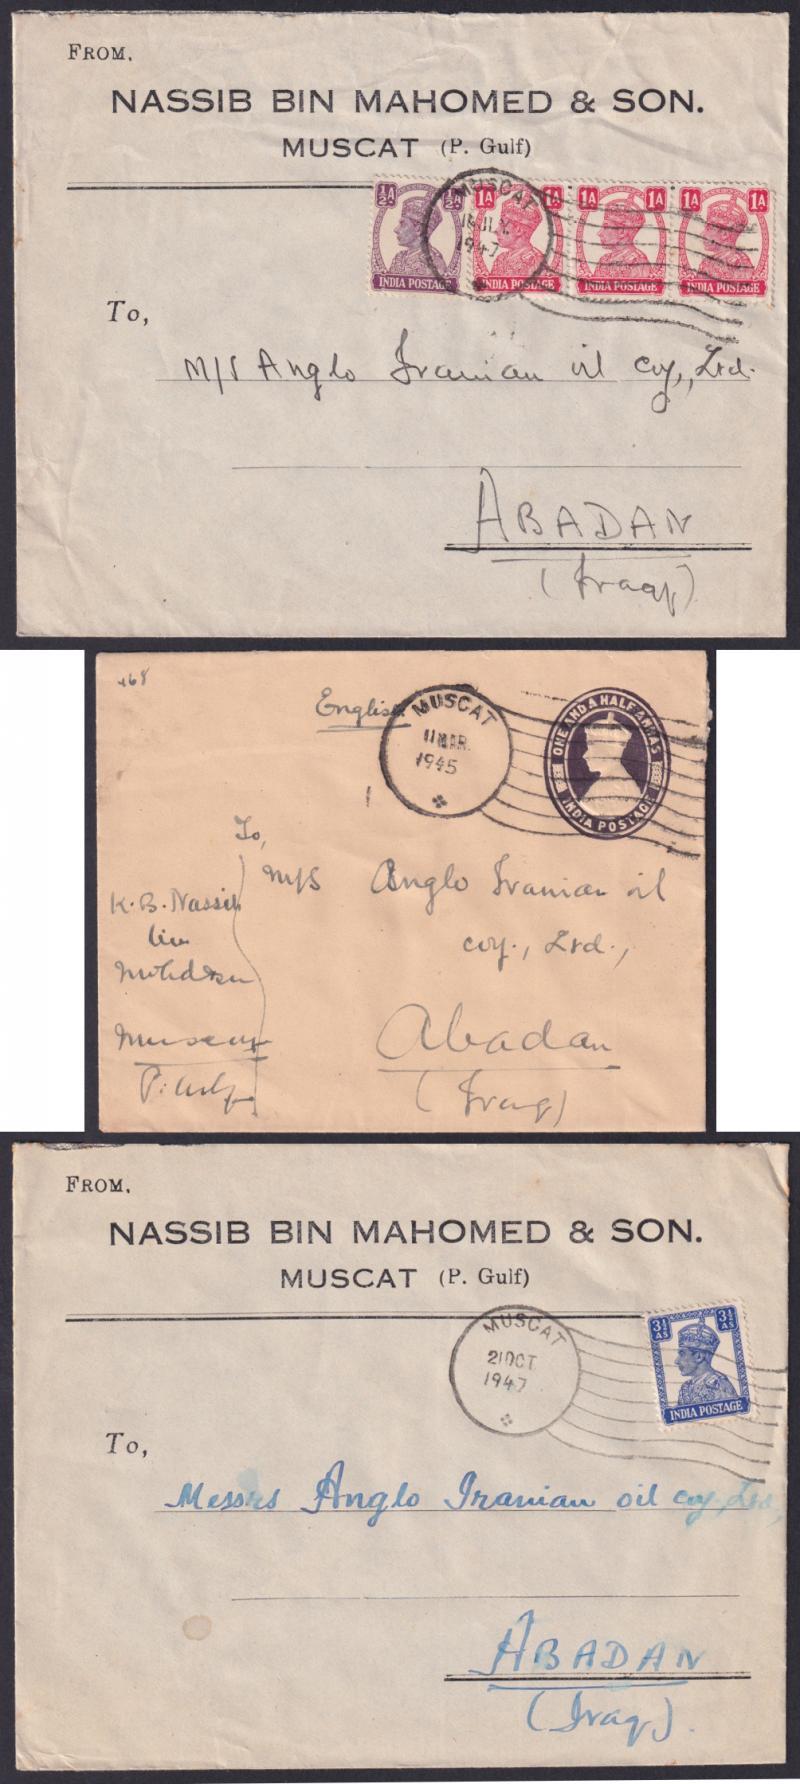 FROM,
NASSIB BIN MAHOMED & SON.
MUSCAT (P. Gulf)
½A ½A 1A 1A 1A 1A 1A
MUSCAT
1947
INDIA POSTAGE INDIA POSTAGE INDIA POSTAGE INDIA POSTAGE
To,
M/S Anglo Iranian oil coy,, Ltd.
ABADAN
(Iraq)
468
English
MUSCAT
11 MAR.
1945
ONE AND A HALF ANNAS
INDIA POSTAGE
To,
M/S Anglo Iranian oil
coy., Ltd.,
Abadan
(Iraq)
K.B. Nassib
bin
Muscat
P. Gulf
FROM,
NASSIB BIN MAHOMED & SON.
MUSCAT (P. Gulf)
MUSCAT
21 OCT
1947
3½ AS 3½ AS
INDIA POSTAGE
To,
Messrs Anglo Iranian oil coy, Ltd,
ABADAN
(Iraq).